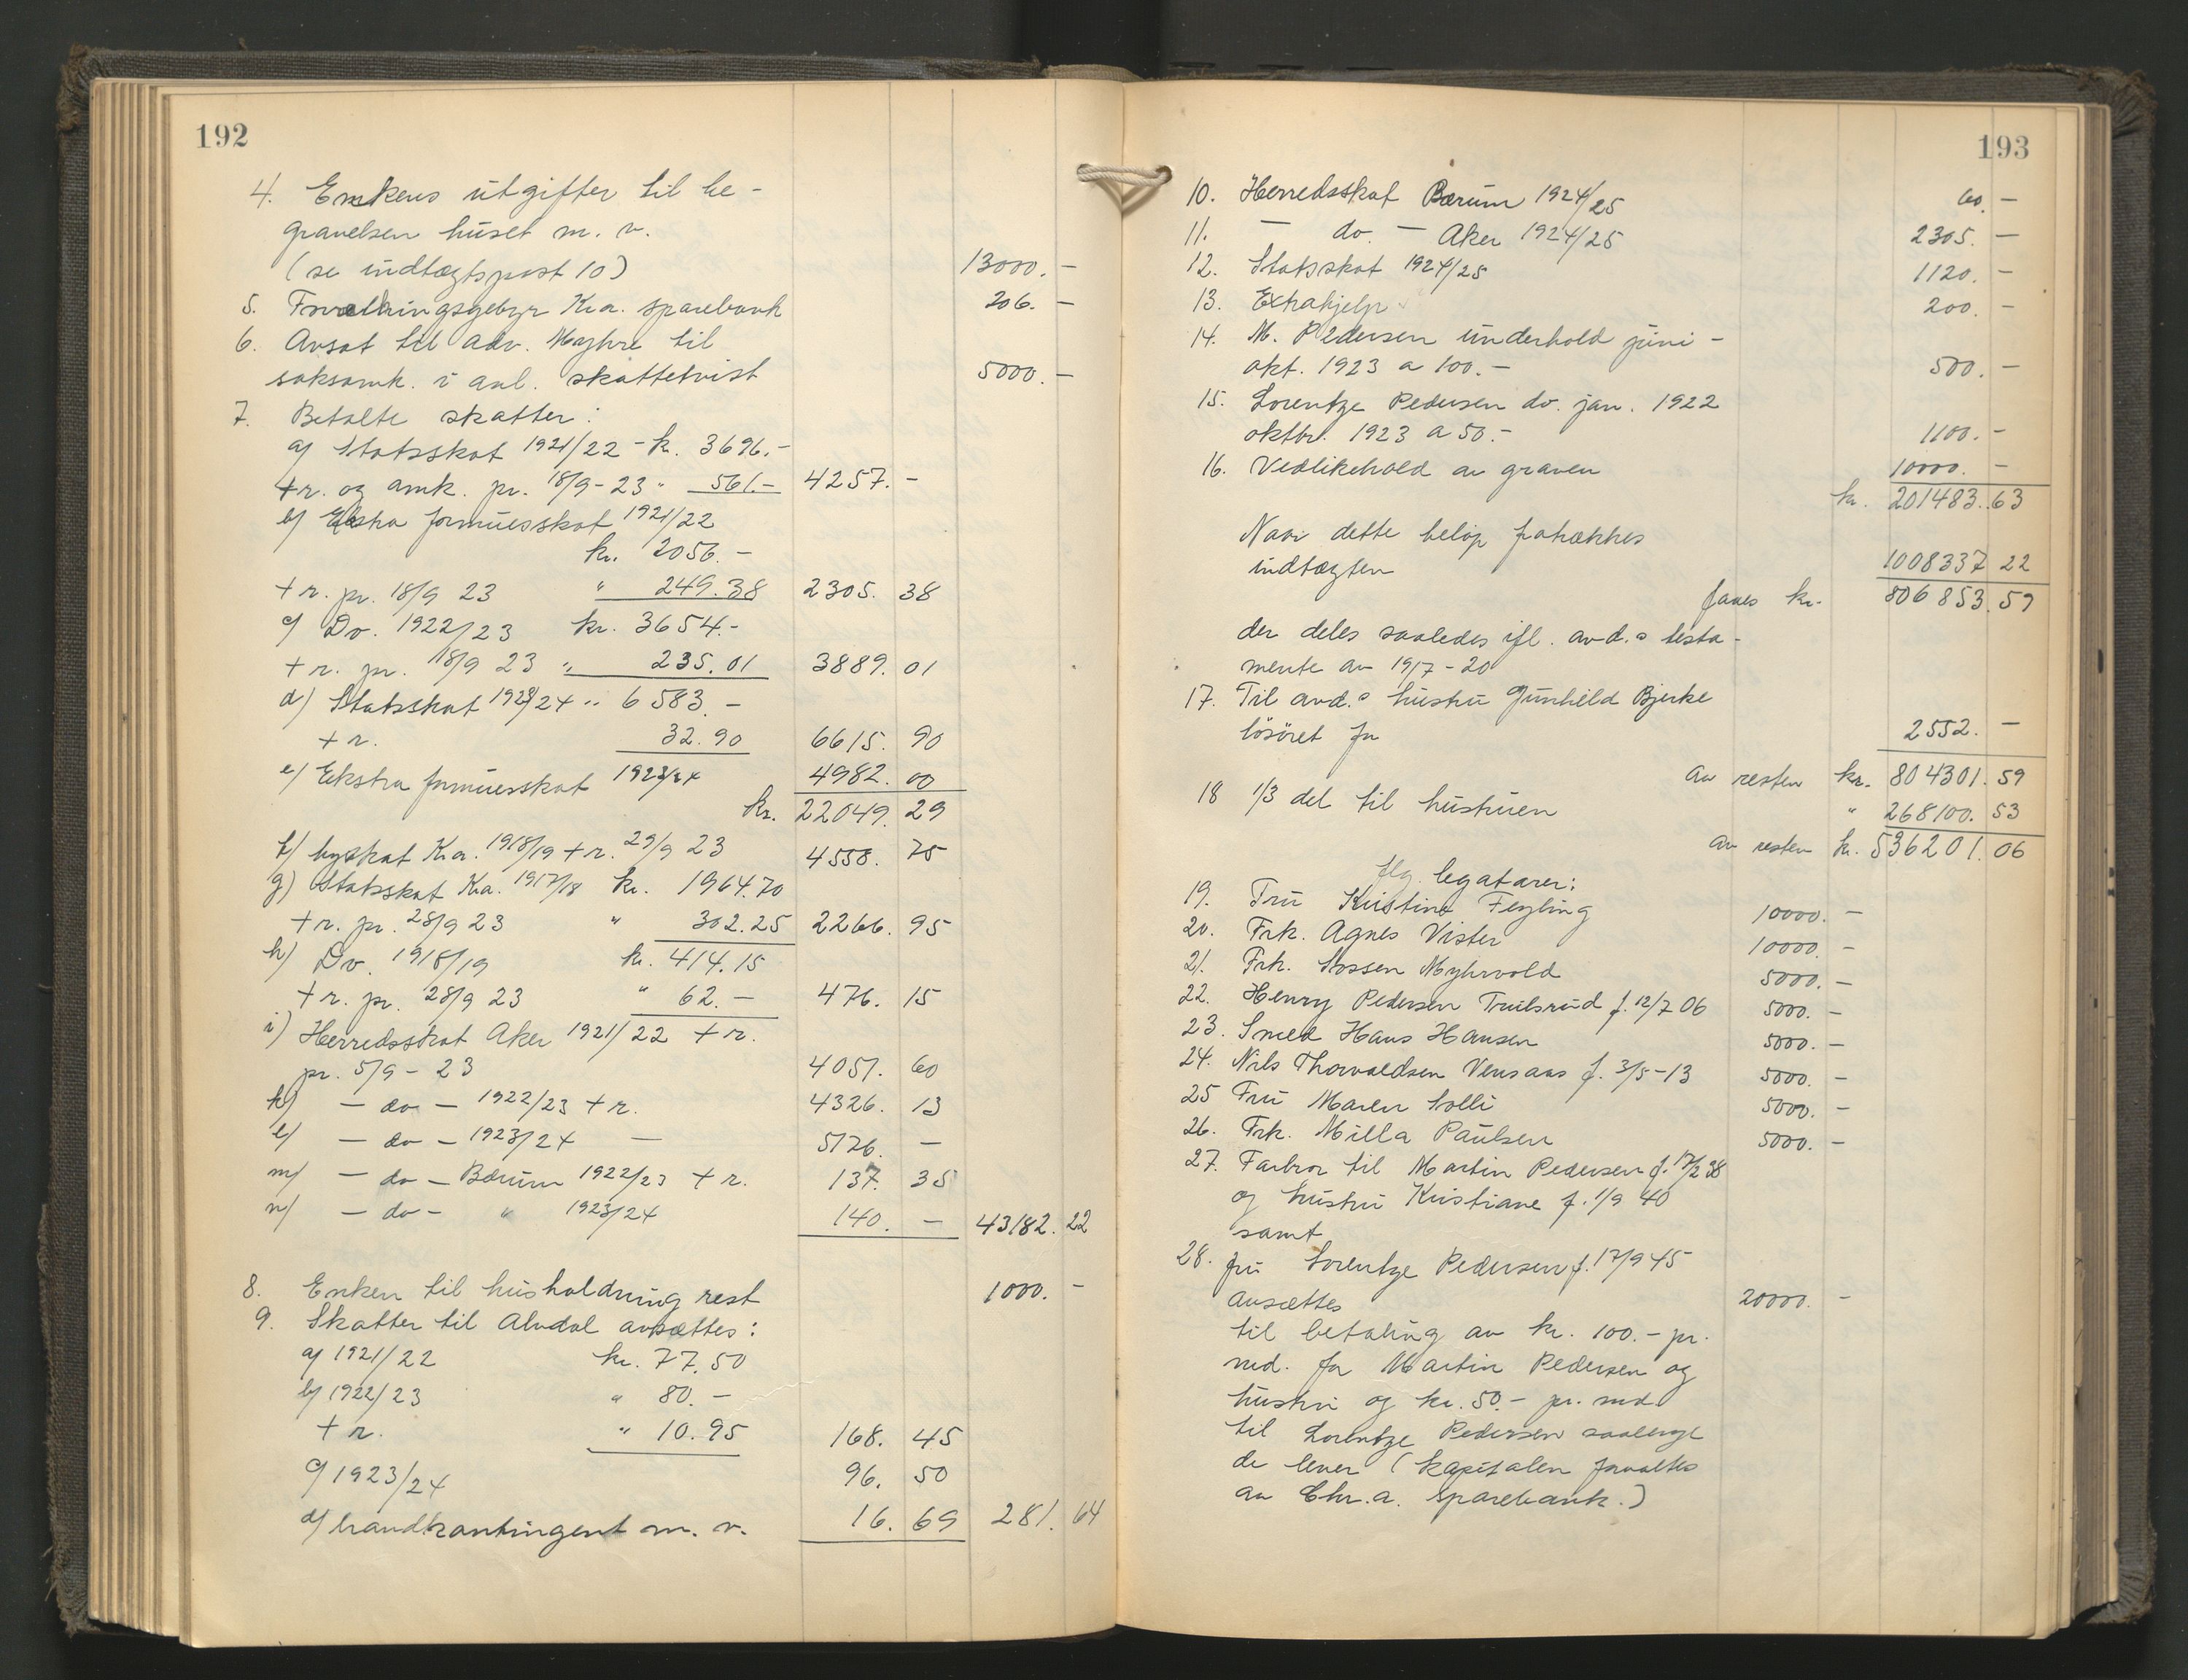 192
4. Enkens utgifter til be-
gravelsen huset m. v.
(se indtægtspost 10) 13000. -
5. Forvaltningsgebyr Kra. sparebank 206. -
6. Avsat til adv. Myhre til
saksomk. i anl. skattetvist 5000. -
7. Betalte skatter:
a) Statsskat 1921/22 - kr. 3696.-
+ r. og omk. pr. 18/9-23 " 561.- 4257. -
b) Ekstra formuesskat 1921/22
kr. 2056.-
+ r. pr. 18/9 23 " 249.38 2305. 38
c) Do. 1922/23 kr. 3654.-
+ r. pr. 18/9 23 " 235.01 3889. 01
d) Statsskat 1923/24 " 6583.-
+ r. 32.90 6615. 90
e) Ekstra formuesskat 1923/24 4982. 00
kr. 22049. 29
f) byskat Kra. 1918/19 + r. 29/9 23 4558. 75
g) Statsskat Kra. 1917/18 kr. 1964.70
+ r. pr. 28/9 23 " 302.25 2266. 95
h) Do. 1918/19 kr. 414.15
+ r. pr. 28/9 23 " 62.- 476. 15
i) Herredsskat Aker 1921/22 + r.
pr. 5/9-23 4051. 60
k) - do - 1922/23 + r. 4326. 13
l) - do - 1923/24 - 5126. -
m) - do - Bærum 1922/23 + r. 137. 35
n) - do - " 1923/24 140. - 43182. 22
8. Enken til husholdning rest 1000. -
9. Skatter til Alvdal avsættes:
a) 1921/22 kr. 77.50
b) 1922/23 " 80.-
+ r. " 10.95 168. 45
c) 1923/24 96. 50
d) brandkontingent m. v. 16. 69 281. 64
193
10. Herredsskat Bærum 1924/25 60. -
11. - do. - Aker 1924/25 2305. -
12. Statsskat 1924/25 1120. -
13. Extrahjelp 200. -
14. M. Pedersen underhold juni -
okt. 1923 a 100.- 500. -
15. Lorentze Pedersen do. jan. 1922
oktbr. 1923 a 50.- 1100. -
16. Vedlikehold av graven 10000. -
kr. 201483. 63
Naar dette beløp fratrækkes
indtægten 1008337 22
faaes kr. 806853. 59
der deles saaledes ifl. avd.s testa-
mente av 19/7-20
17. Til avd.s hustru Gunhild Bjerke
løsøret for 2552. -
av resten kr. 804301. 59
18 1/3 del til hustruen " 268100. 53
av resten kr. 536201. 06
flg. legatarer:
19. Fru Kristine Feyling 10000. -
20. Frk. Agnes Vister 10000. -
21. Frk. Sossen Myhrvold 5000. -
22. Henry Pedersen Trulsrud f. 12/7 06 5000. -
23. Smed Hans Hansen 5000. -
24. Nils Thorvaldsen Vensaas f. 3/5-13 5000. -
25 Fru Maren Solli 5000. -
26. Frk. Milla Paulsen 5000. -
27. Farbror til Martin Pedersen f. 17/2 38
og hustru Kristiane f. 1/9 40
samt
28. fru Lorentze Pedersen f. 17/9 45
avsættes 20000. -
til betaling av kr. 100.- pr.
md. for Martin Pedersen og
hustru og kr. 50.- pr. md
til Lorentze Pedersen saalenge
de lever (kapitalen forvaltes
av Chr.a. sparebank.)